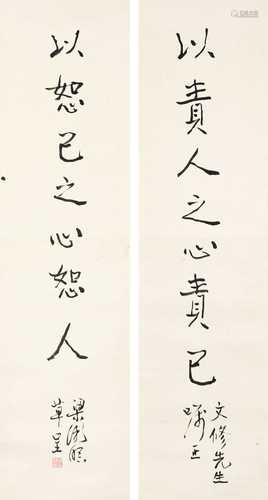 以责人之心責已
文修先生
嘱正
以恕已之心恕人
梁漱溟
草呈